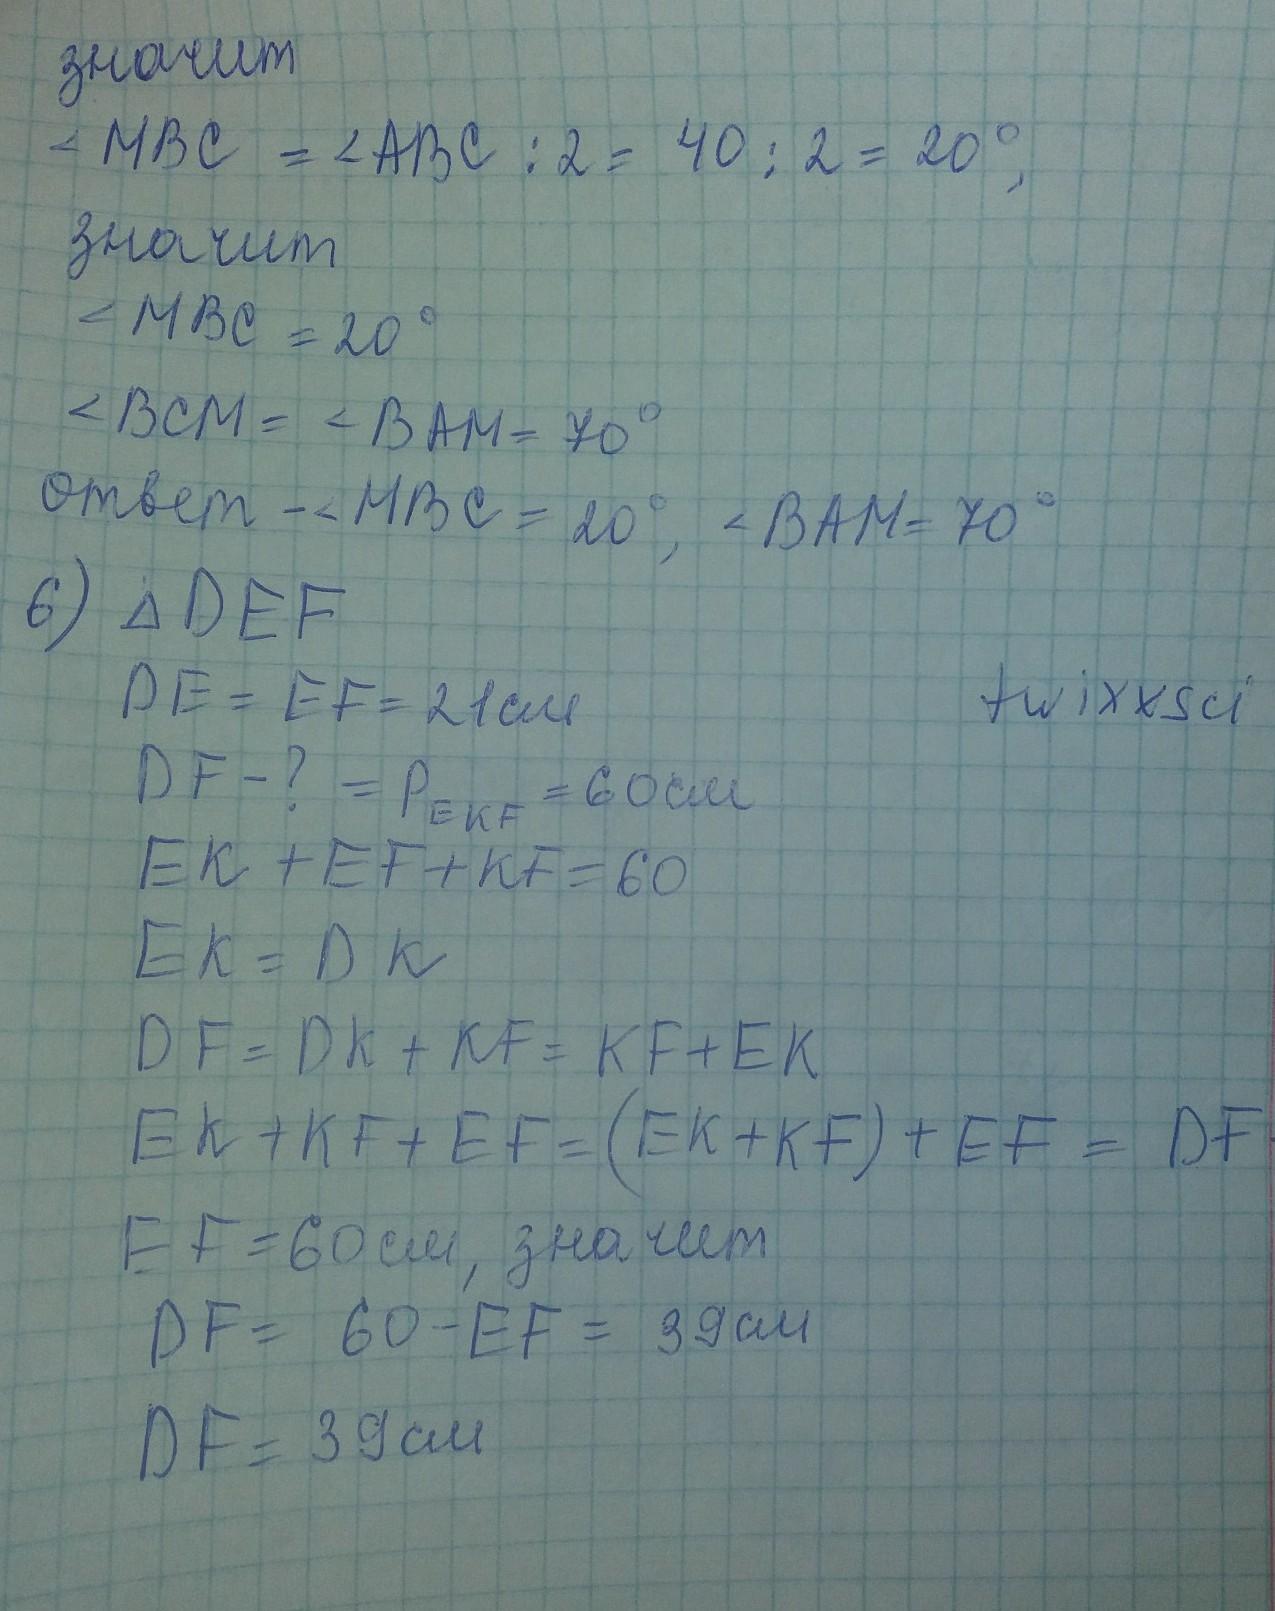 значит
<MBC = <ABC : 2 = 40 : 2 = 20°,
значит
<MBC = 20°
<BCM = <BAM = 70°
ответ - <MBC = 20°, <BAM = 70°
6) △DEF
DE = EF = 21см
twixxsci
DF - ? = P_EKF = 60см
EK + EF + KF = 60
EK = DK
DF = DK + KF = KF + EK
EK + KF + EF = (EK + KF) + EF = DF
EF = 60см, значит
DF = 60 - EF = 39см
DF = 39см